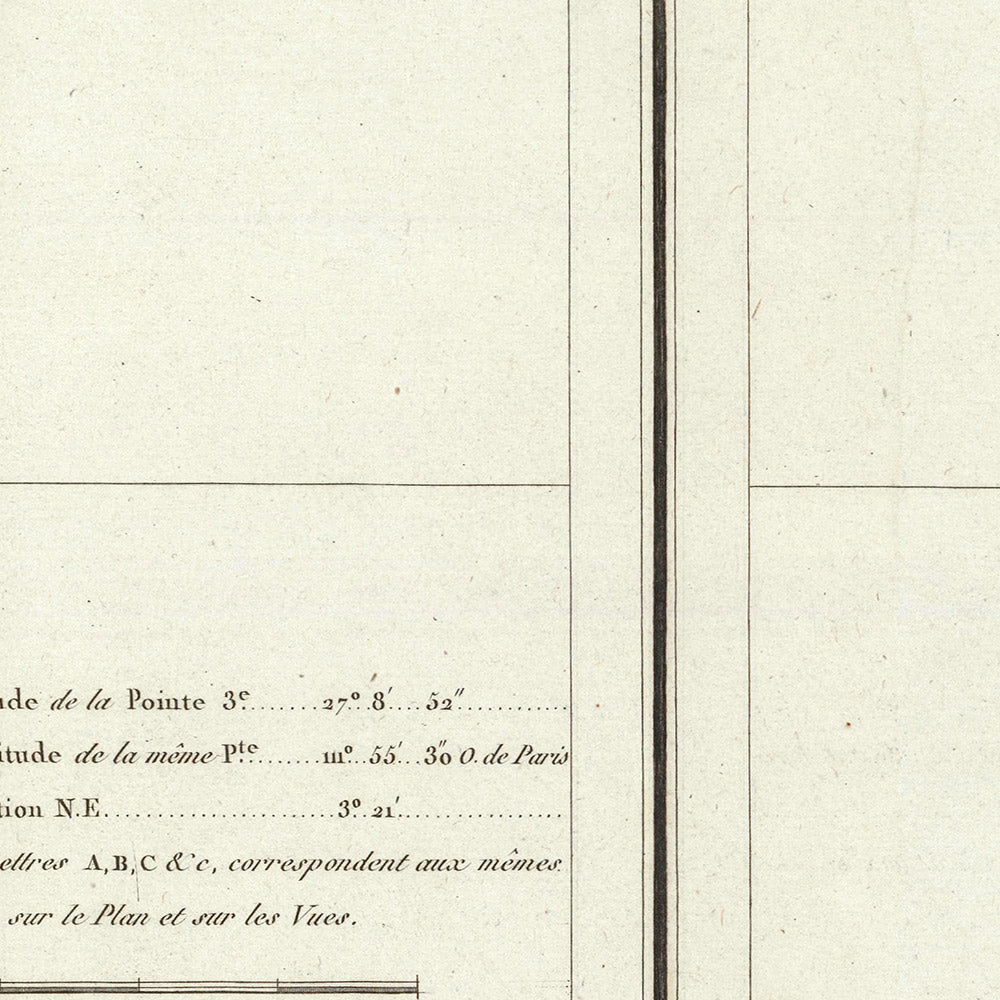 ude de la Pointe 3e.......27°. 8'....52"............
itude de la même Pte.......111°..55'...30" O. de Paris
tion N.E......................3°. 21'..................
ettres A, B, C &c, correspondent aux mêmes
sur le Plan et sur les Vues.